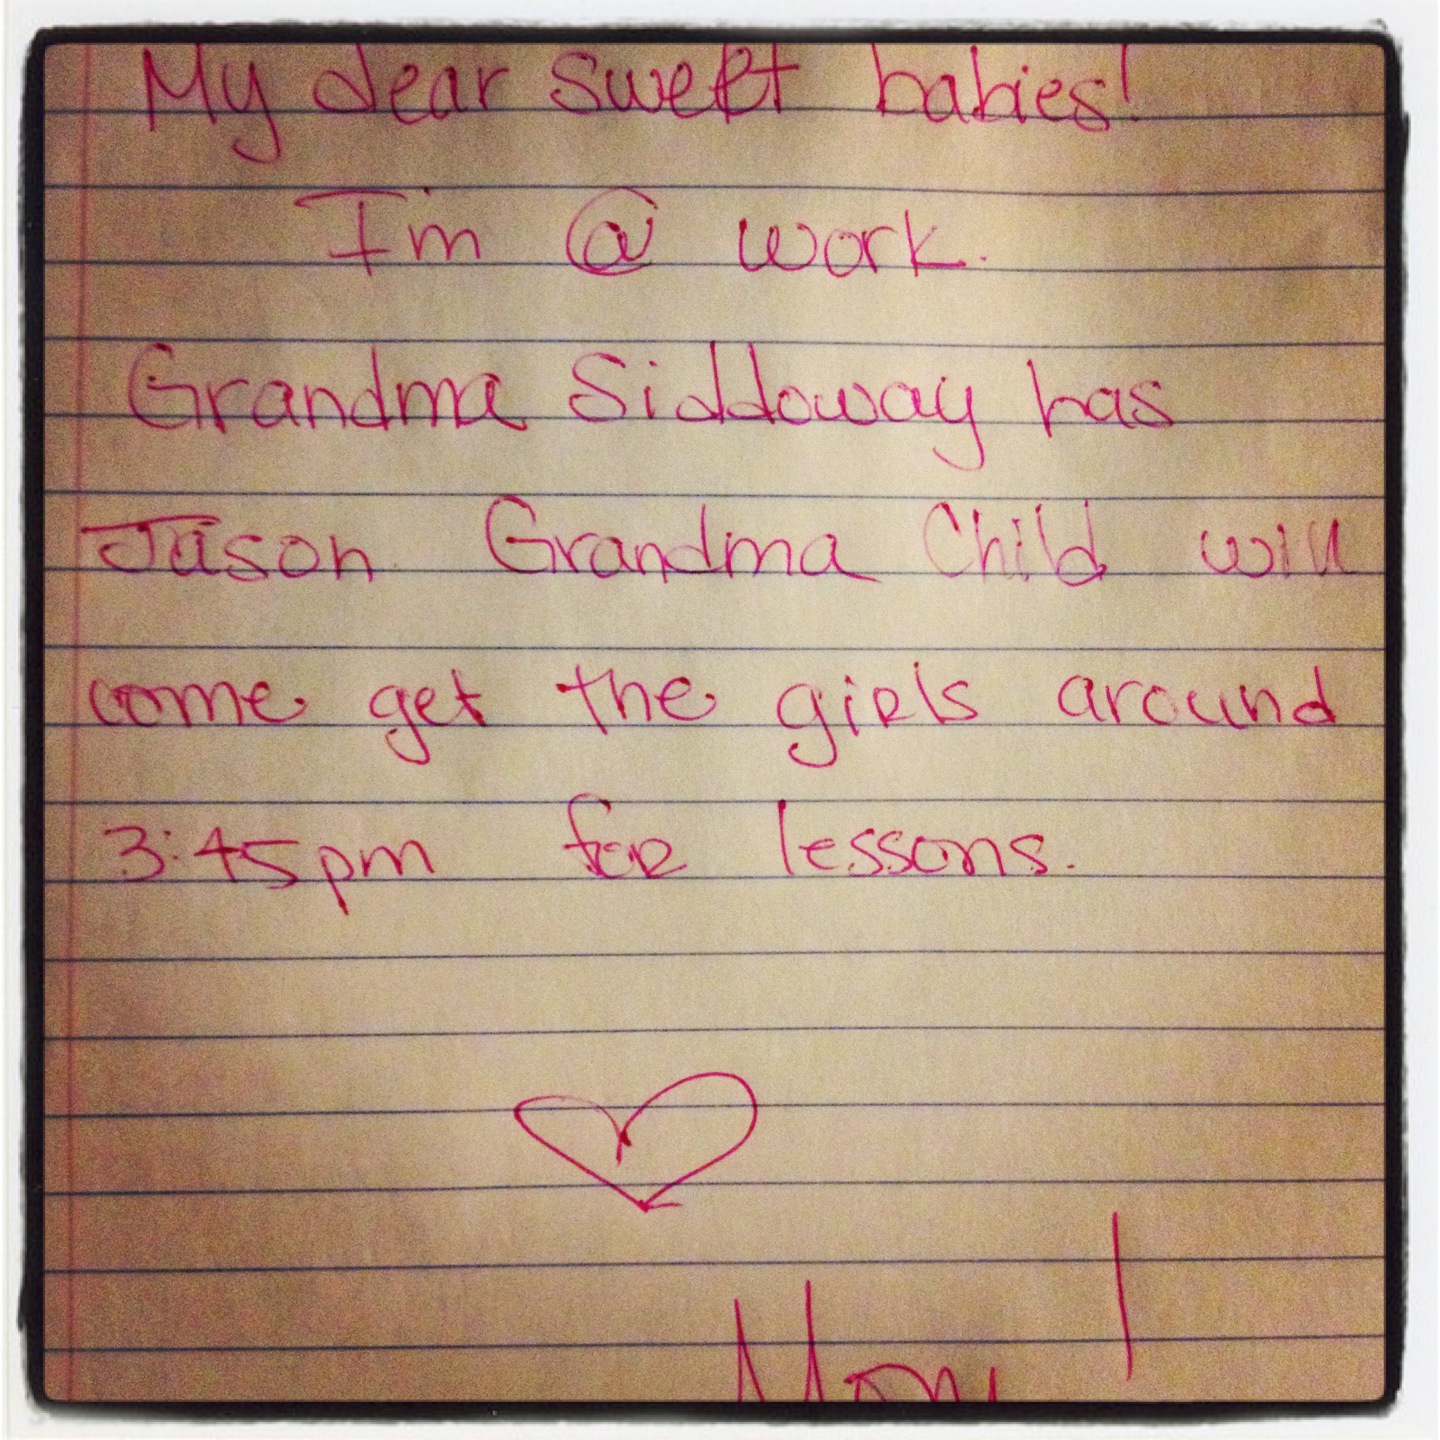 My dear sweet babies!
I'm @ work.
Grandma Siddoway has
Jason Grandma Child will
come get the girls around
3:45pm for lessons.
Mom!